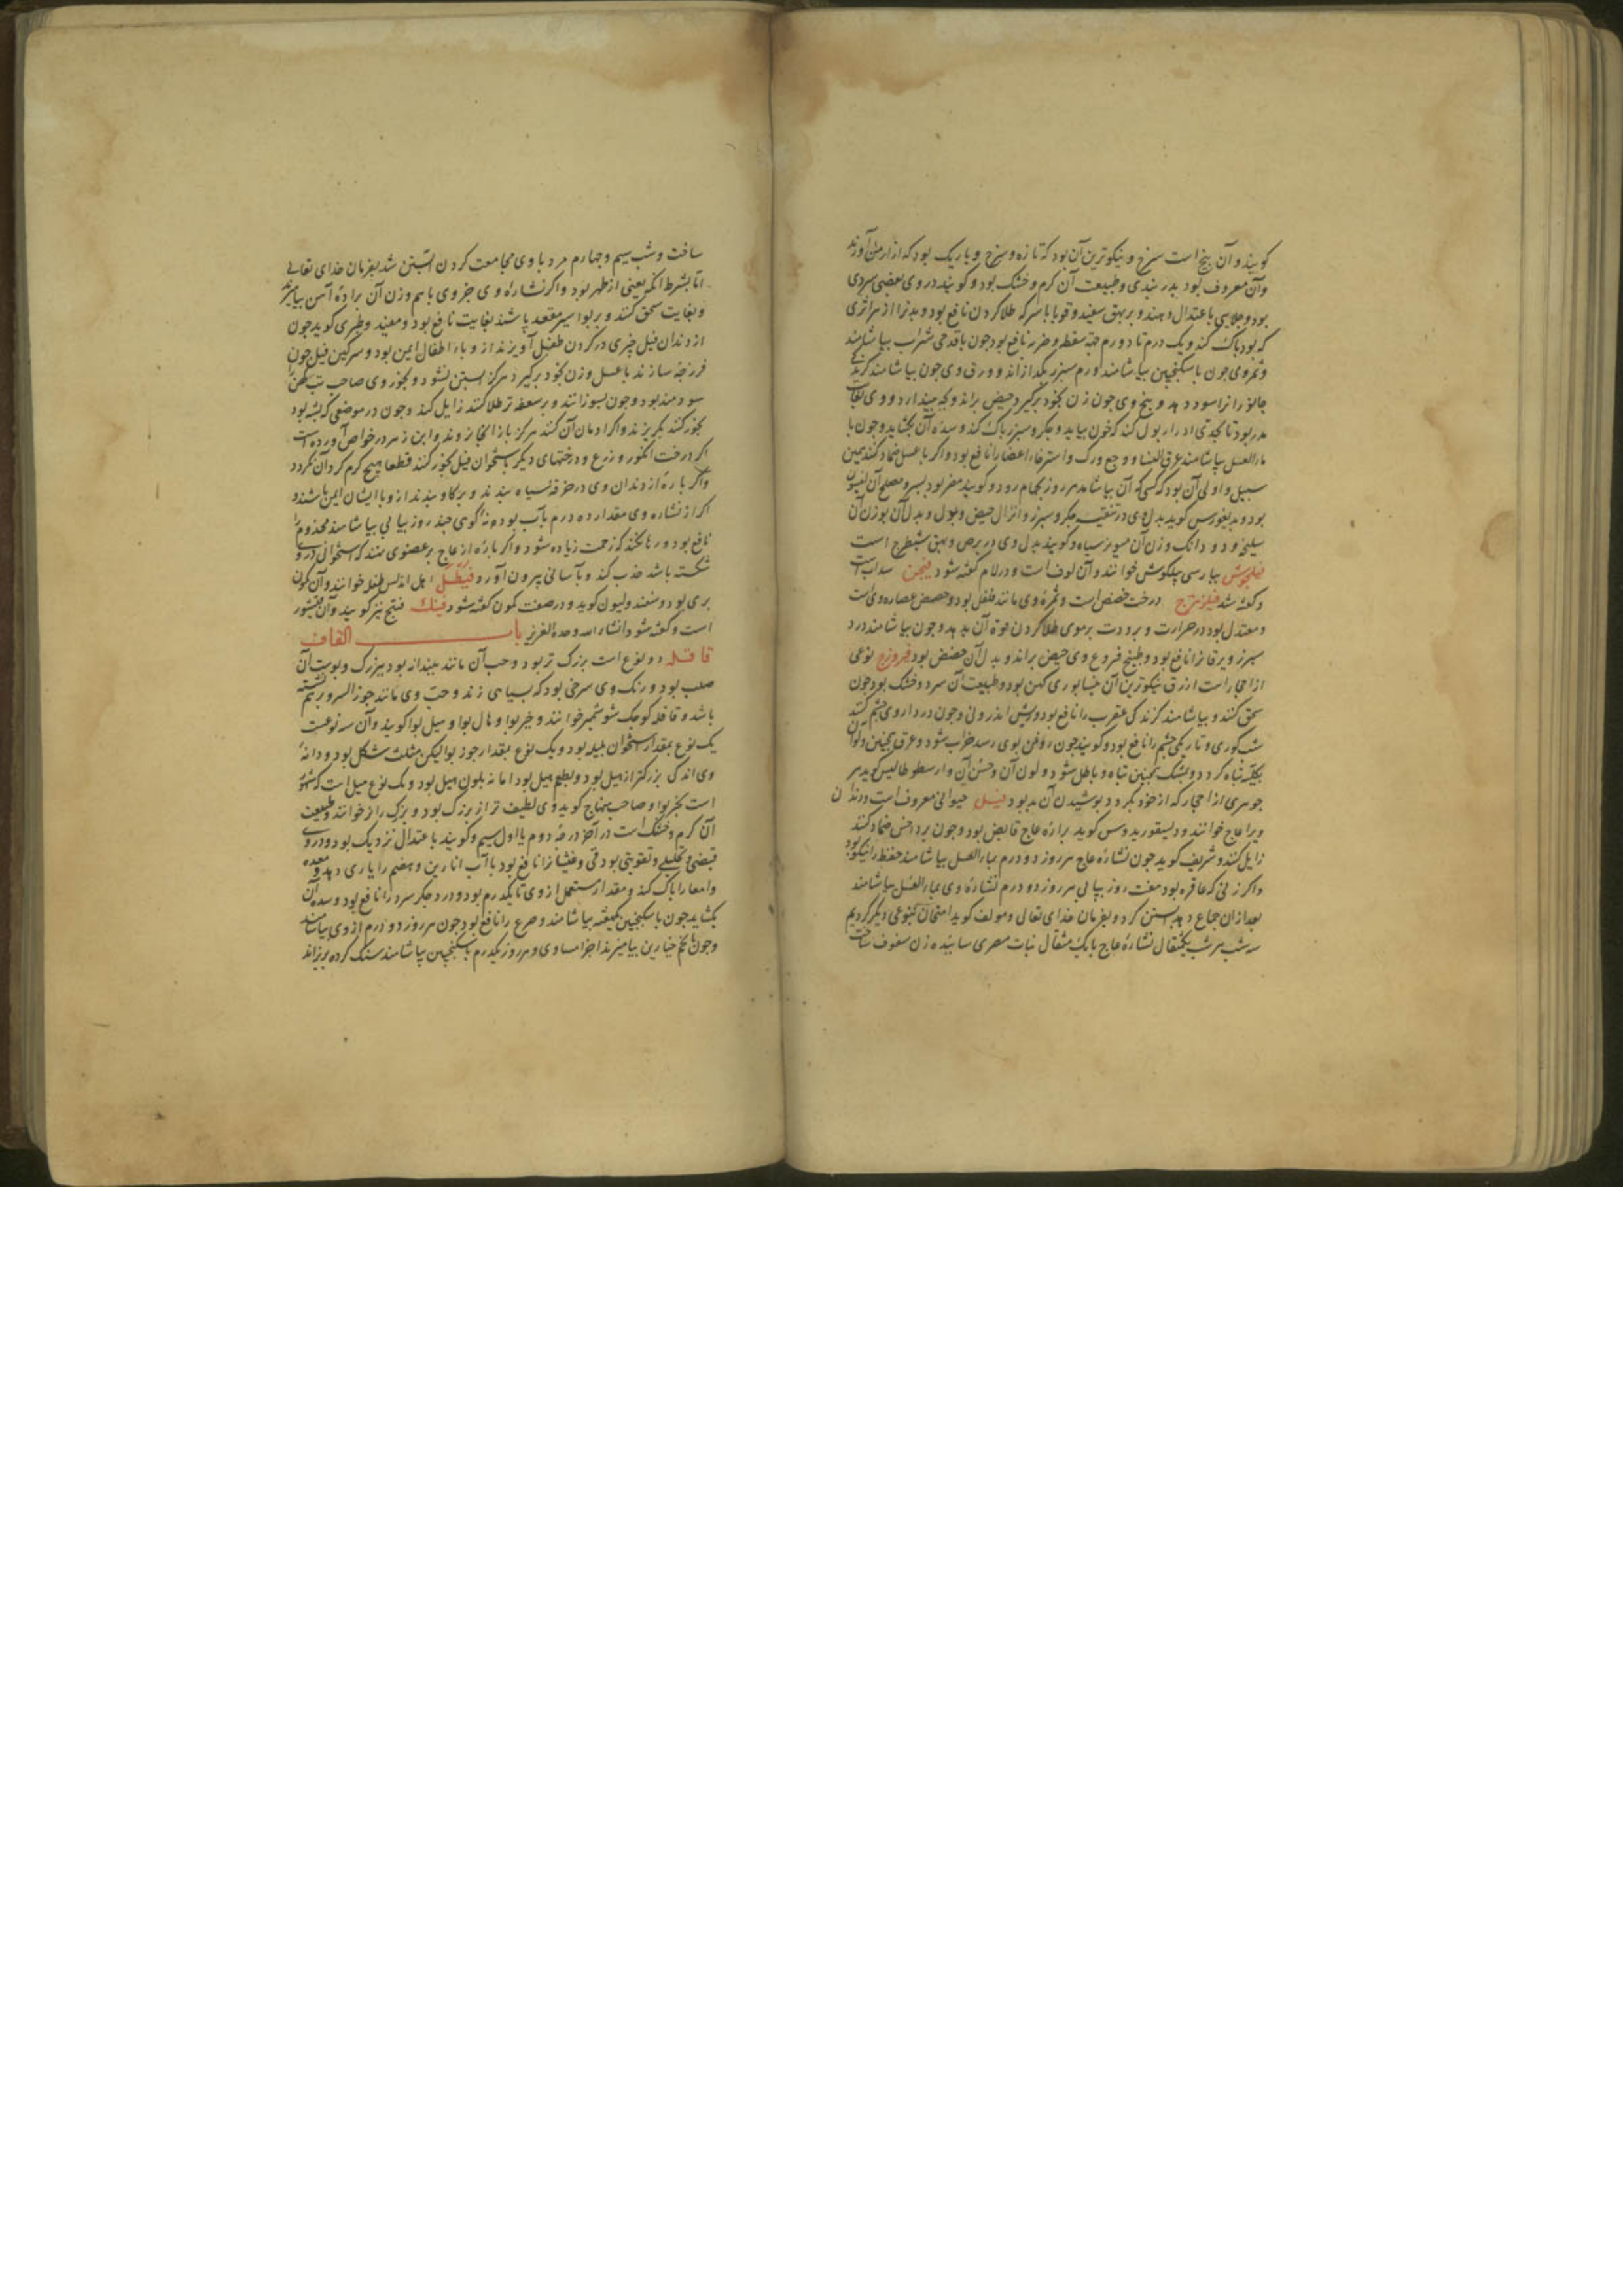 کویند و آن بیخ است سرخ و نیکوترین آن بود که تازه و سرخ و باریک بود که از ارمن آورند
و آن معروف بود بدربندی و طبیعت آن کرم و خشک بود و کویند در وی بعضی سردی
بود و جلایی باعتدال دهند و بر بهق سفید و قوبا با سرکه طلا کردن نافع بود و بدنرا از هر اثری
که بود پاک کند و یک درم تا دو درم جهة سقطه و ضربه نافع بود جون با قدحی شراب بیاشامند
و ثمر وی جون با سکنجبین بیاشامند ورم سبرز بکدازاند و ورق وی جون بیاشامند کزیدکی
جانورانرا سود دهد و بیخ وی جون زن بخود برکیرد حیض براند و بچه بیندازد و وی بغایت
مدر بود تا بحدی ادرار بول کند که خون بیاید و جکر و سبرز پاک کند و سده آن بکشاید و جون با
ماء العسل بیاشامند عرق النسا و وجع ورک و استرخاء اعضا را نافع بود و اکر با عسل ضماد کنند همین
سبیل و اولی آن بود که کسی که آن بیاشامد هر روز بحمام رود و کویند مضر بود بسر و مصلح آن انیسون
بود و بدیغورس کوید بدل وی در تنقیه جکر و سبرز و انزال حیض و بول و بدل آن بوزن آن
سلیخه و دو دانک وزن آن میویز سیاه و کویند بدل وی در برص و بهق شیطرج است
فیلجوش بپارسی پیلکوش خوانند و آن لوف است و در لام کفته شود فیجن سداب است
و کفته شد فیلزهرج درخت حضض است و ثمره وی مانند فلفل بود و حضض عصاره وی است
و معتدل بود در حرارت و برودت بر موی طلا کردن قوة آن بدهد و جون بیاشامند درد
سبرز و یرقانرا نافع بود و طبیخ فروع وی حیض براند و بدل آن حضض بود فیروزج نوعی
از احجار است ازرق نیکوترین آن نیشابوری کهن بود و طبیعت آن سرد و خشک بود جون
سحق کنند و بیاشامند کزندکی عقرب را نافع بود و ریش اندرونی و جون در داروی جشم کنند
شب کوری و تاریکی جشم را نافع بود و کویند جون روغن بوی رسد خراب شود و عرق همچنین و لون
بکلیه تباه کردد و بمشک همچنین تباه و باطل شود و لون آن و حسن آن و ارسطوطالیس کوید هر
جوهری از احجار که از خود بکردد پوشیدن آن بد بود فیل حیوانی معروفست و دندان
ویرا عاج خوانند و دیسقوریدوس کوید براده عاج قابض بود و جون بر داحس ضماد کنند
زایل کند و شریف کوید جون نشاره عاج هر روز دو درم بماء العسل بیاشامند حفظ را نیکو بود
و اکر زنی که عاقره بود هفت روز پیاپی هر روز دو درم نشاره وی بماء العسل بیاشامند
بعد از ان جماع دهد آبستن کردد بفرمان خدای تعالی و مولف کوید امتحان بنوعی دیکر کردیم
سه شب هر شب یکمثقال نشاره عاج با یک مثقال نبات مصری ساییده زن سفوف ساخت
سافت و شب سیم و جهارم مرد با وی مجامعت کردن آبستن شد بفرمان خدای تعالی
اما بشرط آنکه یعنی از طهر بود و اکر نشاره وی جزوی با هم وزن آن براده آهن بیامیزند
و بغایت سحق کنند و بر بواسیر مقعد پاشند بغایت نافع بود و مفید و طبری کوید جون
از دندان فیل جیزی در کردن طفل آویزند از وباء اطفال ایمن بود و سرکین فیل جون
فرزجه سازند با عسل و زن بخود برکیرد هرکز آبستن نشود و بخور وی صاحب تب کهن را
سودمند بود و جون بسوزانند و بر سعفه تر طلا کنند زایل کند و جون در موضعی که پشه بود
بخور کنند بکریزند و اکر ادمان آن کنند هرکز باز آنجا نروند و ابن زهر در خواص آورده است
اکر درخت انکور و زرع و درختهای دیکر باستخوان فیل بخور کنند قطعا هیچ کرم کرد آن نکردد
و اکر پاره از دندان وی در خرقه سیاه بندند و بر کاو بندند از وبا ایشان ایمن باشند و
اکر از نشاره وی مقدار ده درم بآب بودنه کوهی جند روز پیاپی بیاشامند مجذوم را
نافع بود و رها نکند که زحمت زیاده شود و اکر پاره از عاج بر عضوی نهند که استخوانی در وی
شکسته باشد جذب کند و بآسانی بیرون آورد فیطل اهل اندلس فیطله خوانند و آن کمون
بری بود و کوید و در صفت کمون کفته شود فینک فنج نیز کویند و آن
است و کفته شود انشاء الله وحده العزیز باب القاف
قاقله دو نوع است بزرک تر بود و حب آن مانند بیدانه بود بزرک و پوست آن
صلب بود و رنک وی سرخی بود که بسیاهی زند و حب وی مانند جوز السرو بر هم نشسته
باشد و قاقله کوجک شوشمیر خوانند و خیربوا و هال بوا و هیل بوا کویند و آن سه نوعست
یک نوع بمقدار استخوان هلیله بود و یک نوع بمقدار جوزبوا لیکن مثلث شکل بود و دانه
وی اندکی بزرکتر از هیل بود و بطعم هیل بود اما نه بلون هیل بود و یک نوع هیل است که مشهور
است بخیربوا و صاحب منهاج کوید وی لطیف تر از بزرک بود و بزرک را نر خوانند و طبیعت
آن کرم و خشک است در آخر درجه دوم یا اول سیم و کویند باعتدال نزدیک بود و در وی
قبضی و تحلیلی و تقویتی بود قی و غثیانرا نافع بود با آب انارین و هضم را یاری دهد و معده
و امعا را پاک کند و مقدار مستعمل از وی تا یکدرم بود و درد جکر سرد را نافع بود و سده آن
بکشاید جون با سکنجبین یکهفته بیاشامند و صرع را نافع بود جون هر روز دو درم از وی بیاشامند
و جون با تخم خیارین بیامیزند اجزا مساوی و هر روز یکدرم بسکنجبین بیاشامند سنک کرده بریزاند